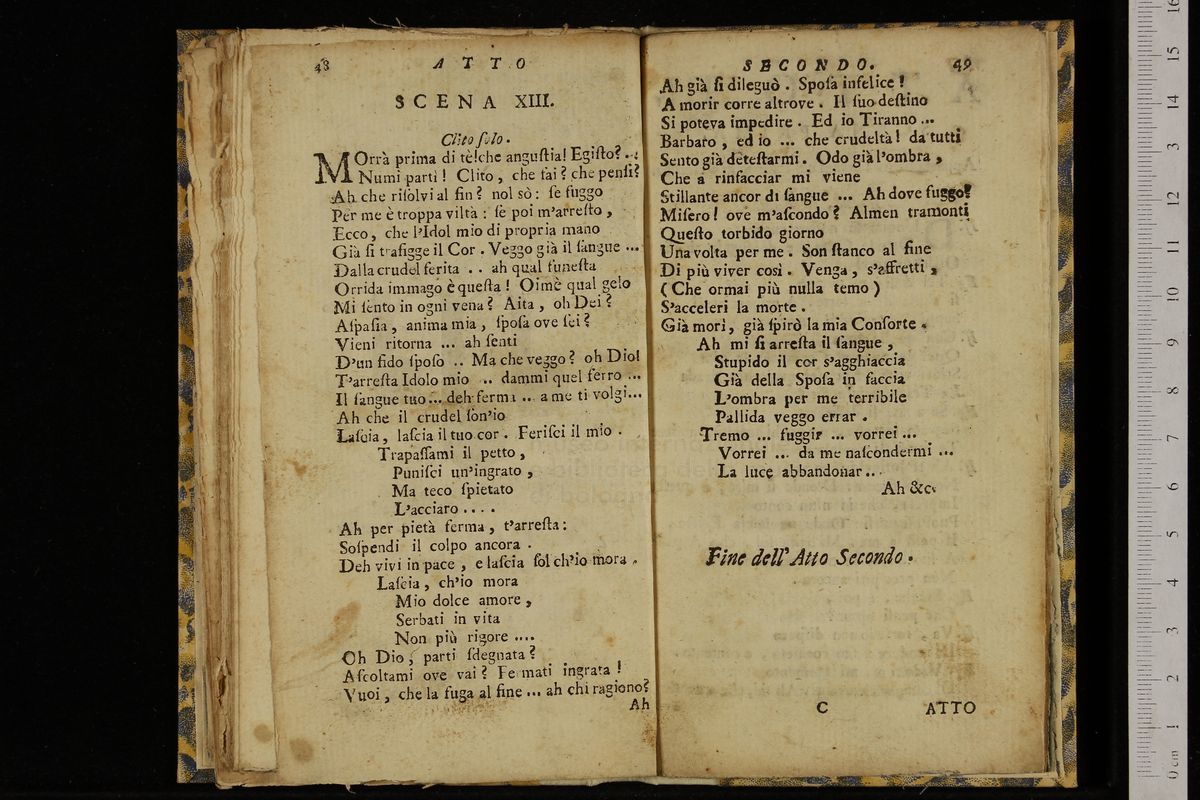 48 ATTO
SCENA XIII.
Clito ſolo.
MOrrà prima di tè! che anguſtia! Egiſto? ..
Numi partì! Clito, che fai? che penſi?
Ah che riſolvi al fin? nol sò: ſe fuggo
Per me è troppa viltà: ſe poi m'arreſto,
Ecco, che l'Idol mio di propria mano
Già ſi trafigge il Cor. Veggo già il ſangue ...
Dalla crudel ferita .. ah qual funeſta
Orrida immago è queſta! Oimè qual gelo
Mi ſento in ogni vena? Aita, oh Dei?
Aſpaſia, anima mia, ſpoſa ove ſei?
Vieni ritorna ... ah ſenti
D'un fido ſpoſo .. Ma che veggo? oh Dio!
T'arreſta Idolo mio .. dammi quel ferro ...
Il ſangue tuo... deh ferma .. a me ti volgi...
Ah che il crudel ſon'io
Laſcia, laſcia il tuo cor. Feriſci il mio.
Trapaſſami il petto,
Puniſci un'ingrato,
Ma teco ſpietato
L'acciaro ....
Ah per pietà ferma, t'arreſta:
Soſpendi il colpo ancora.
Deh vivi in pace, e laſcia ſol ch'io mora.
Laſcia, ch'io mora
Mio dolce amore,
Serbati in vita
Non più rigore ....
Oh Dio, parti ſdegnata?
Aſcoltami ove vai? Fermati ingrata!
Vuoi, che la fuga al fine ... ah chi ragiono?
Ah
SECONDO. 49
Ah già ſi dileguò. Spoſa infelice!
A morir corre altrove. Il ſuo deſtino
Si poteva impedire. Ed io Tiranno ...
Barbaro, ed io ... che crudeltà! da tutti
Sento già deteſtarmi. Odo già l'ombra,
Che a rinfacciar mi viene
Stillante ancor di ſangue ... Ah dove fuggo?
Miſero! ove m'aſcondo? Almen tramonti
Queſto torbido giorno
Una volta per me. Son ſtanco al fine
Di più viver così. Venga, s'affretti,
(Che ormai più nulla temo)
S'acceleri la morte.
Già morì, già ſpirò la mia Conſorte.
Ah mi ſi arreſta il ſangue,
Stupido il cor s'agghiaccia
Già della Spoſa in faccia
L'ombra per me terribile
Pallida veggo errar.
Tremo ... fuggir ... vorrei ...
Vorrei ... da me naſcondermi ...
La luce abbandonar ...
Ah &c.
Fine dell'Atto Secondo.
C ATTO
0 cm 1 2 3 4 5 6 7 8 9 10 11 12 13 14 15 16